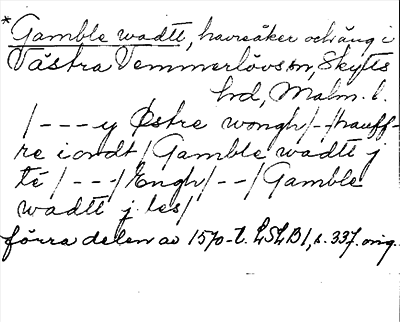 *Gamble wadtt, havreåker och äng i
Västra Vemmerlövs sn, Skytts
hd, Malm. l.
/---y Østre wongh/--/hauff-
re iondt/Gamble wadtt j
té/---/Engh/--/Gamble
wadtt j. les/
förra delen av 1570-t. LSLB1, s. 337. orig.